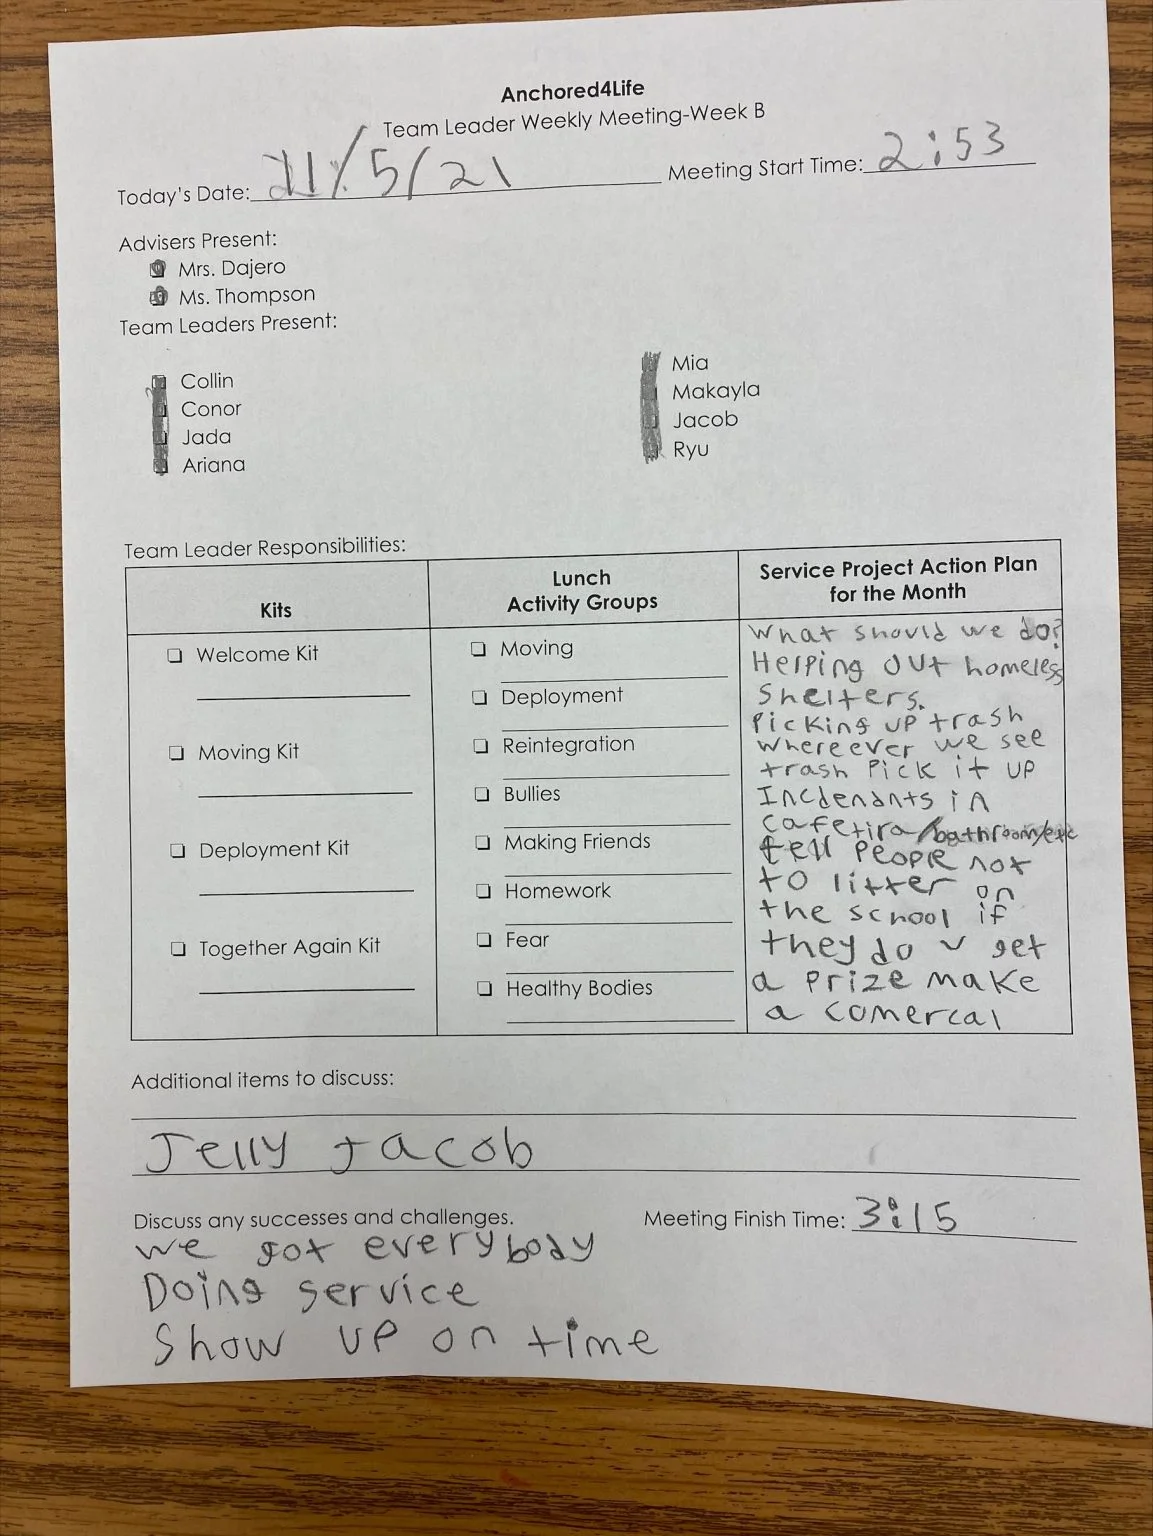 Anchored4Life
Team Leader Weekly Meeting-Week B
Today's Date: 11/5/21 Meeting Start Time: 2:53
Advisers Present:
Mrs. Dajero
Ms. Thompson
Team Leaders Present:
Collin
Conor
Jada
Ariana
Mia
Makayla
Jacob
Ryu
Team Leader Responsibilities:
Kits
Welcome Kit
Moving Kit
Deployment Kit
Together Again Kit
Lunch
Activity Groups
Moving
Deployment
Reintegration
Bullies
Making Friends
Homework
Fear
Healthy Bodies
Service Project Action Plan
for the Month
What should we do?
Helping out homeless
shelters.
picking up trash
whereever we see
trash pick it up
Incdenants in
cafetira/bathroom/etc
tell people not
to litter on
the school if
they do u get
a prize make
a comercal
Additional items to discuss:
Jelly Jacob
Discuss any successes and challenges. Meeting Finish Time: 3:15
we got everybody
Doing service
Show up on time